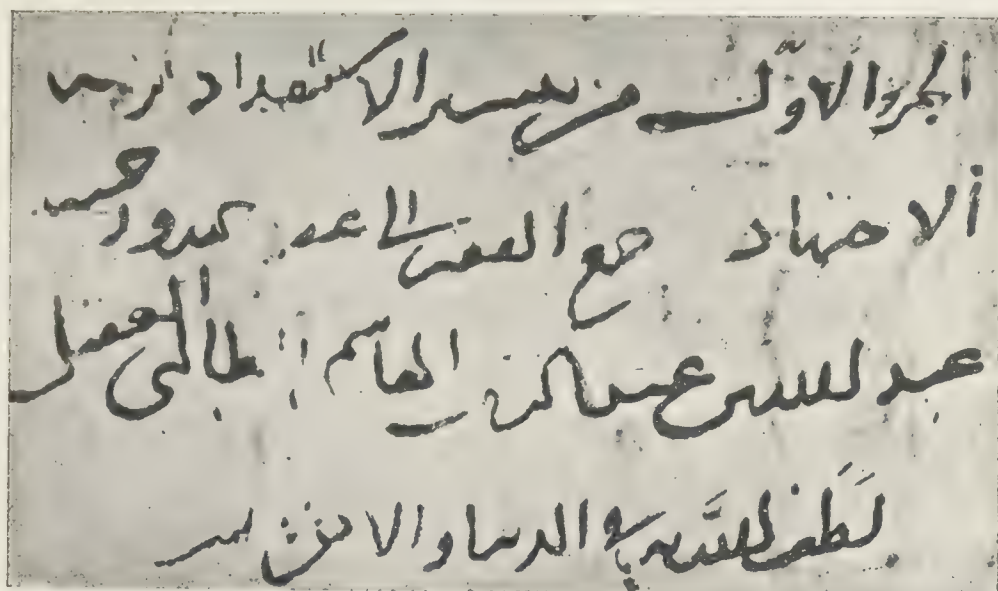 الجزء الاول من تيسير الاستعداد لرتبة
الاجتهاد جمع الفقير الى عفو ربه ورحمته
عبد الله بن عبد الله بن القاسم
لطف الله به في الدنيا والاخرة